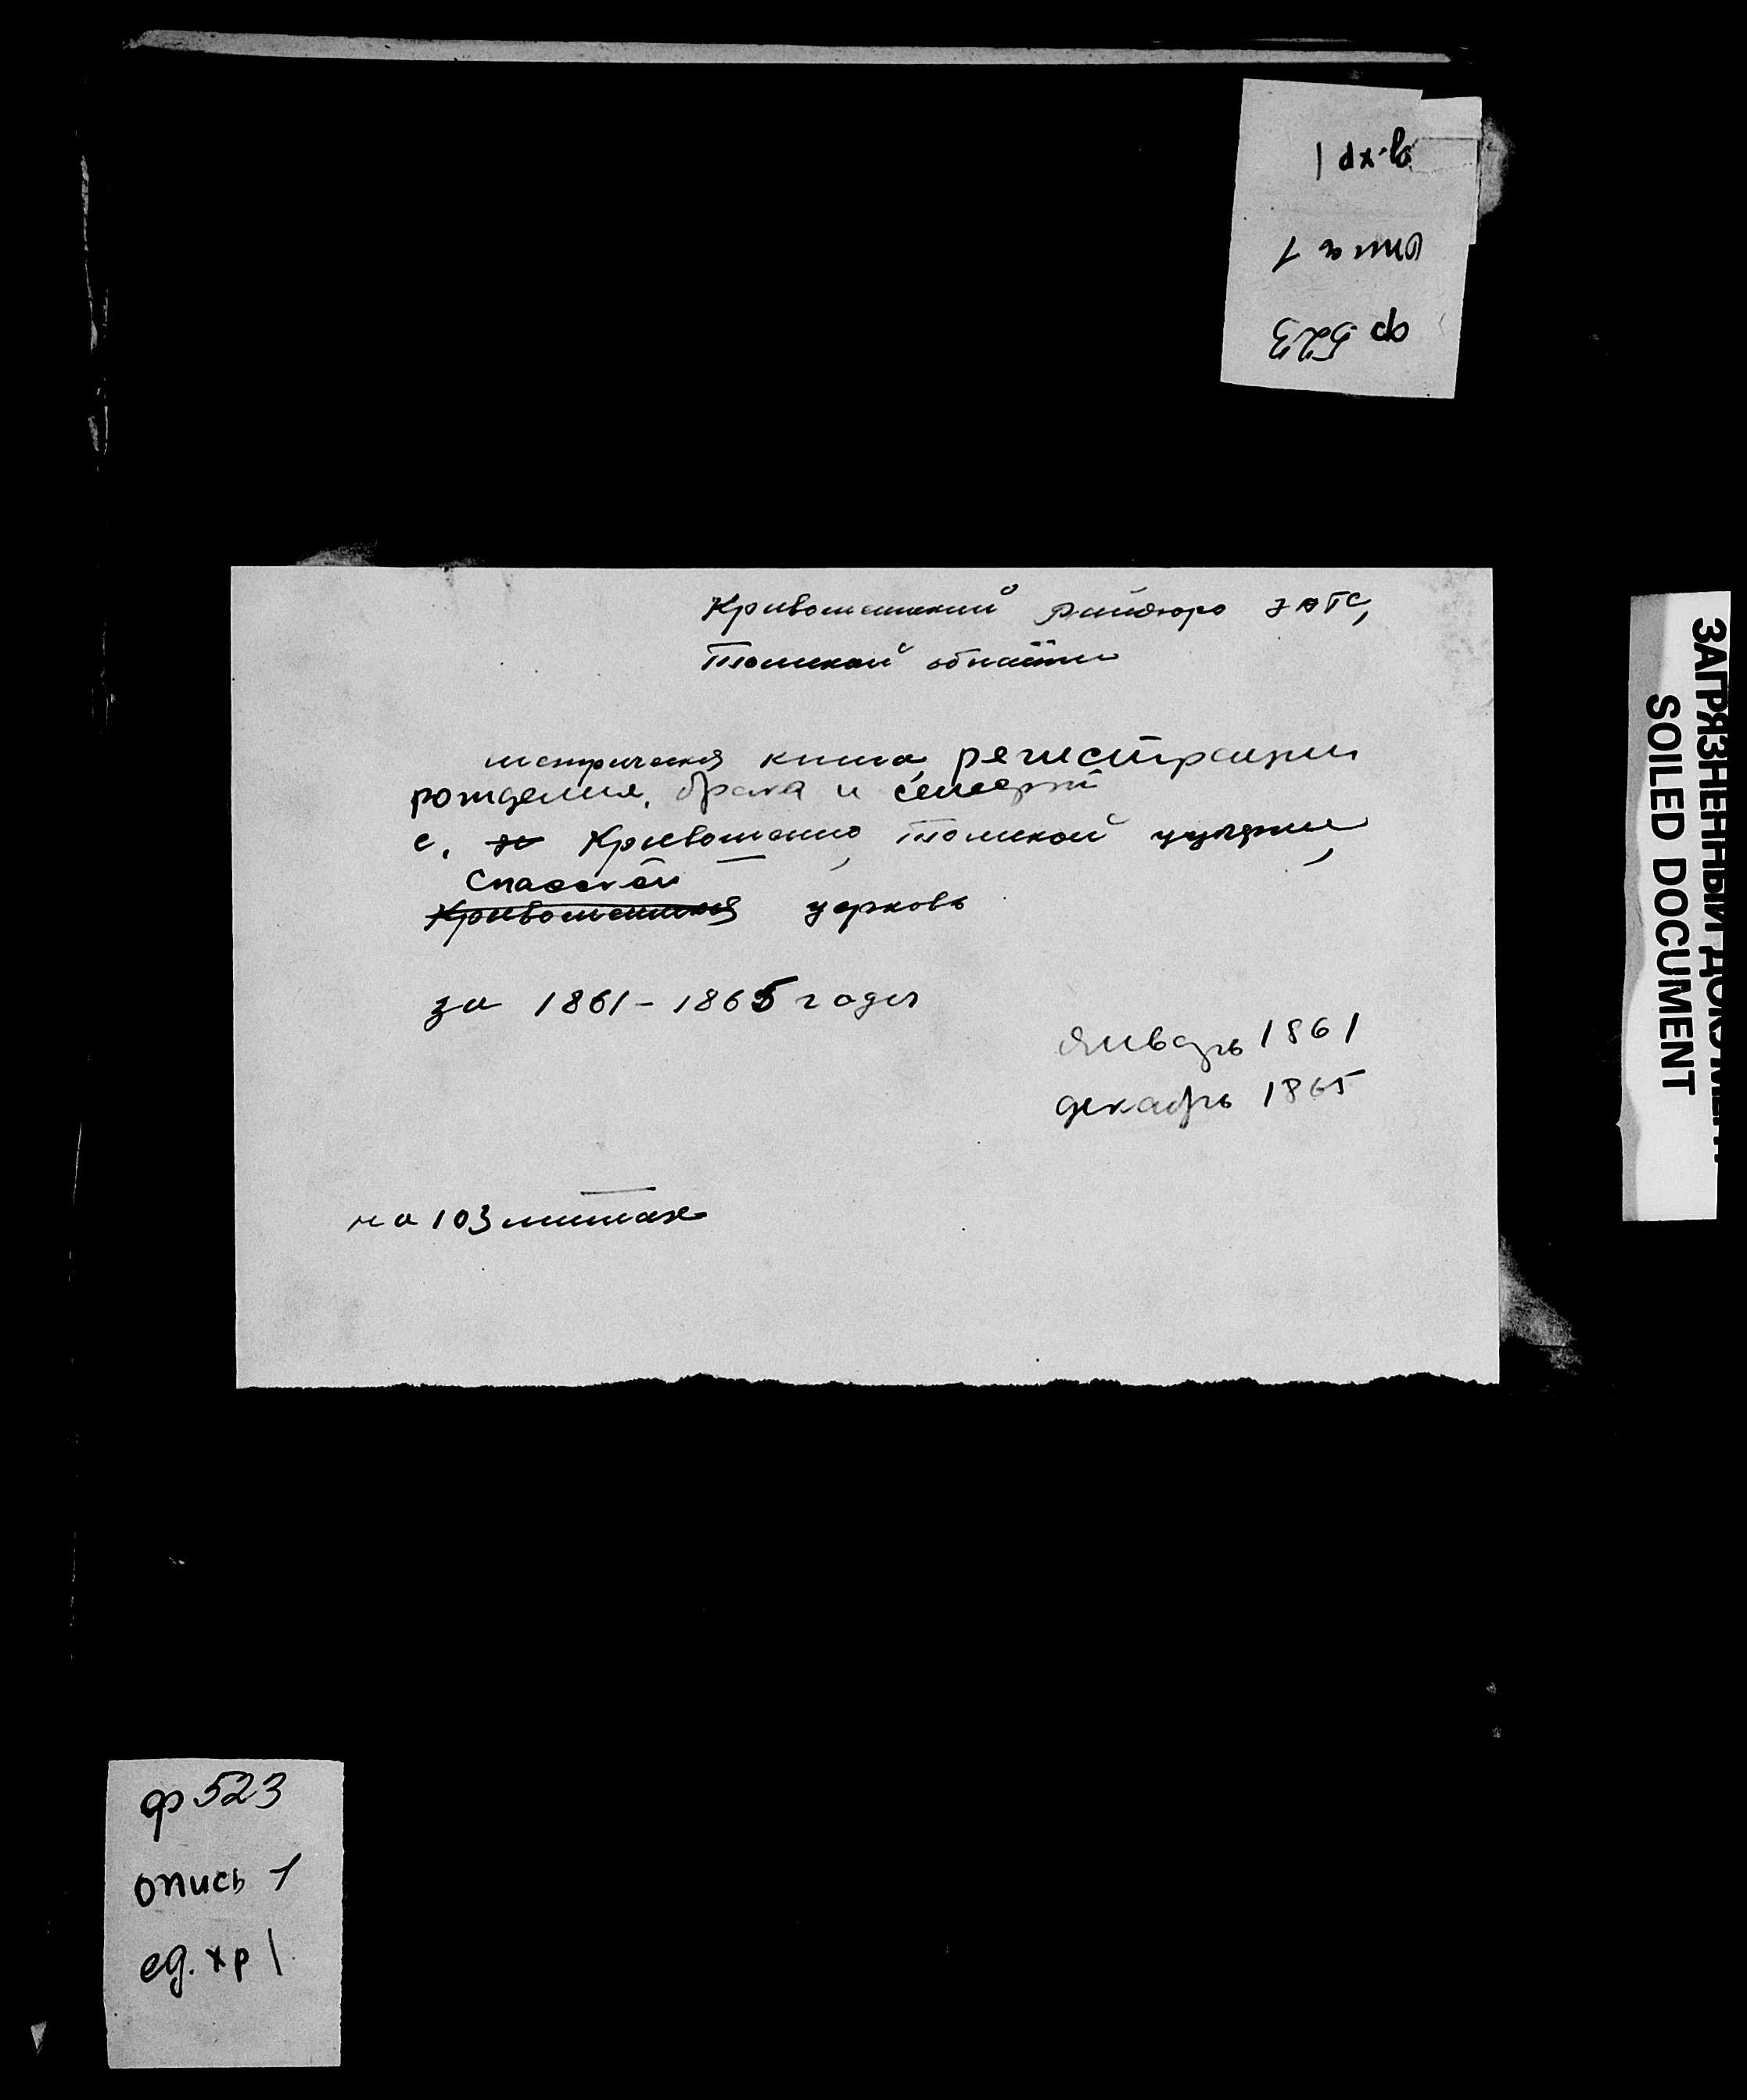 ед. хр 1
опись 1
ф 523
Кривошеинский Райбюро ЗАГС,
Томской области
метрическая книга регистрации
рождения, брака и смерти
с. Кривошеино, Томской губернии,
Спасской
Кривошеинская церковь
за 1861 – 1865 годы
январь 1861
декабрь 1865
на 103 листах
ЗАГРЯЗНЕННЫЙ ДОКУМЕНТ
SOILED DOCUMENT
ф 523
опись 1
ед. хр 1